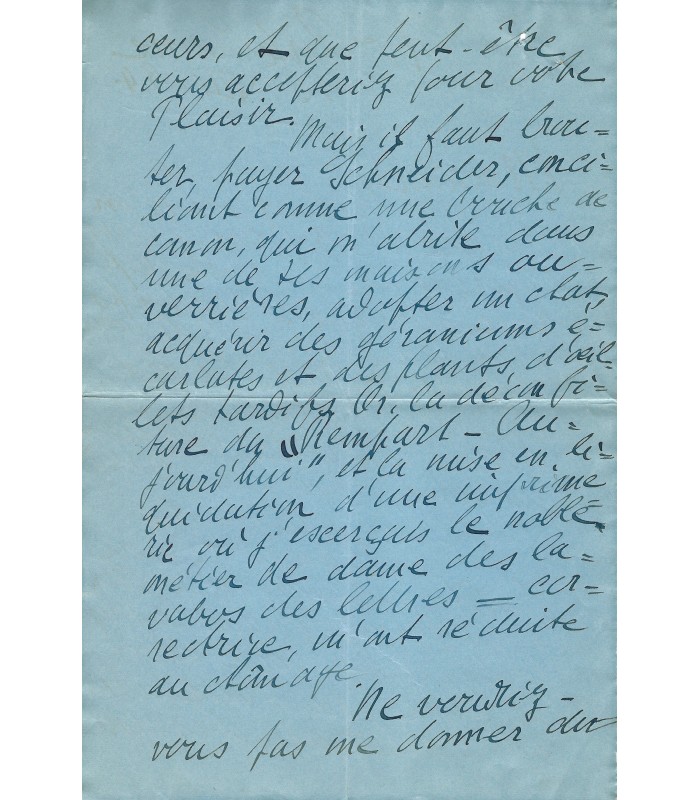 cœurs, et que peut-être
vous accepteriez pour votre
Plaisir.
Mais il faut brou=
ter, payer Schneider, conci=
liant comme une bouche de
canon, qui m'abrite dans
une de ses maisons ou=
vrières, adopter un chat,
acquérir des géraniums é=
carlates et des plants d'œil-
lets tardifs. Or, la déconfi=
ture du "Rempart - Au=
jourd'hui", et la mise en li=
quidation d'une imprime
rie où j'exerçais le noble
métier de dame des la=
vabos des lettres = cor=
rectrice, m'ont réduite
au chômage
Ne voudriez-
vous pas me donner du